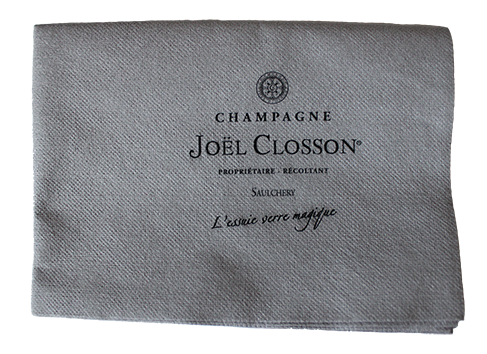 CHAMPAGNE
JOËL CLOSSON®
PROPRIÉTAIRE - RÉCOLTANT
SAULCHERY
L'essuie verre magique